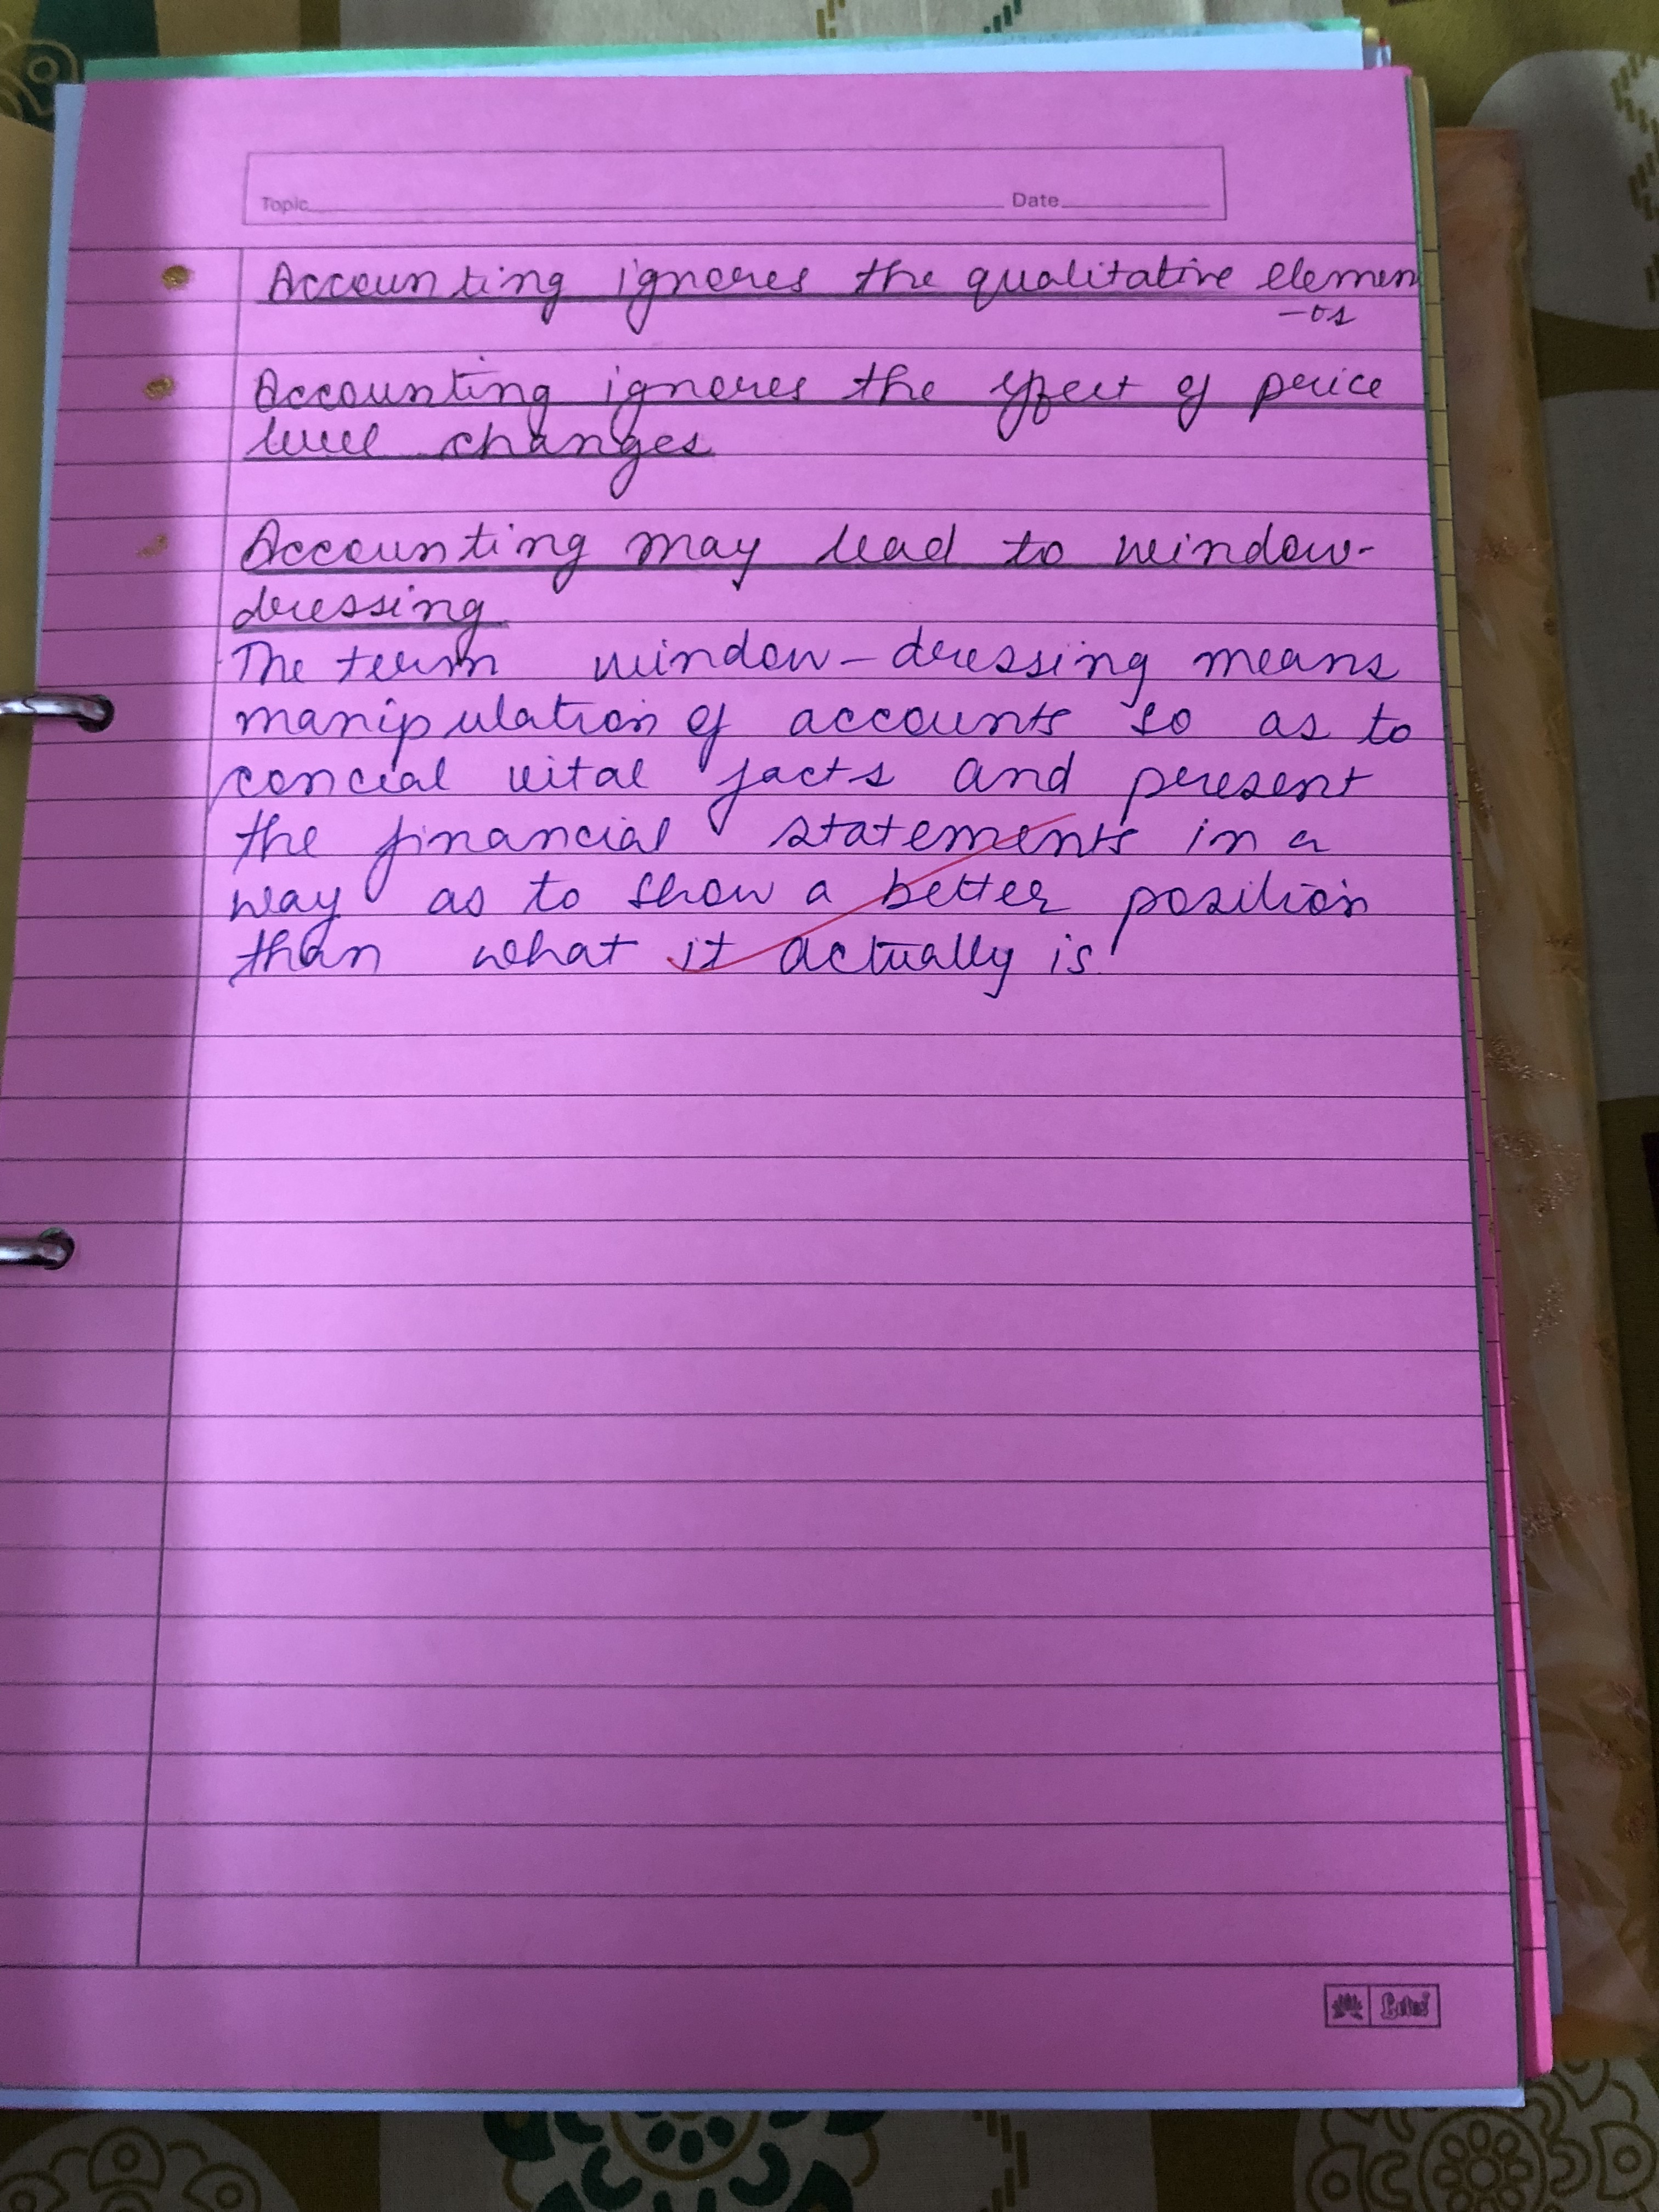 Topic Date
Accounting ignores the qualitative elemen
-ts
Accounting ignores the effect of price
level changes
Accounting may lead to window-
dressing
The term window-dressing means
manipulation of accounts so as to
concial vital facts and present
the financial statements in a
way as to show a better position
than what it actually is